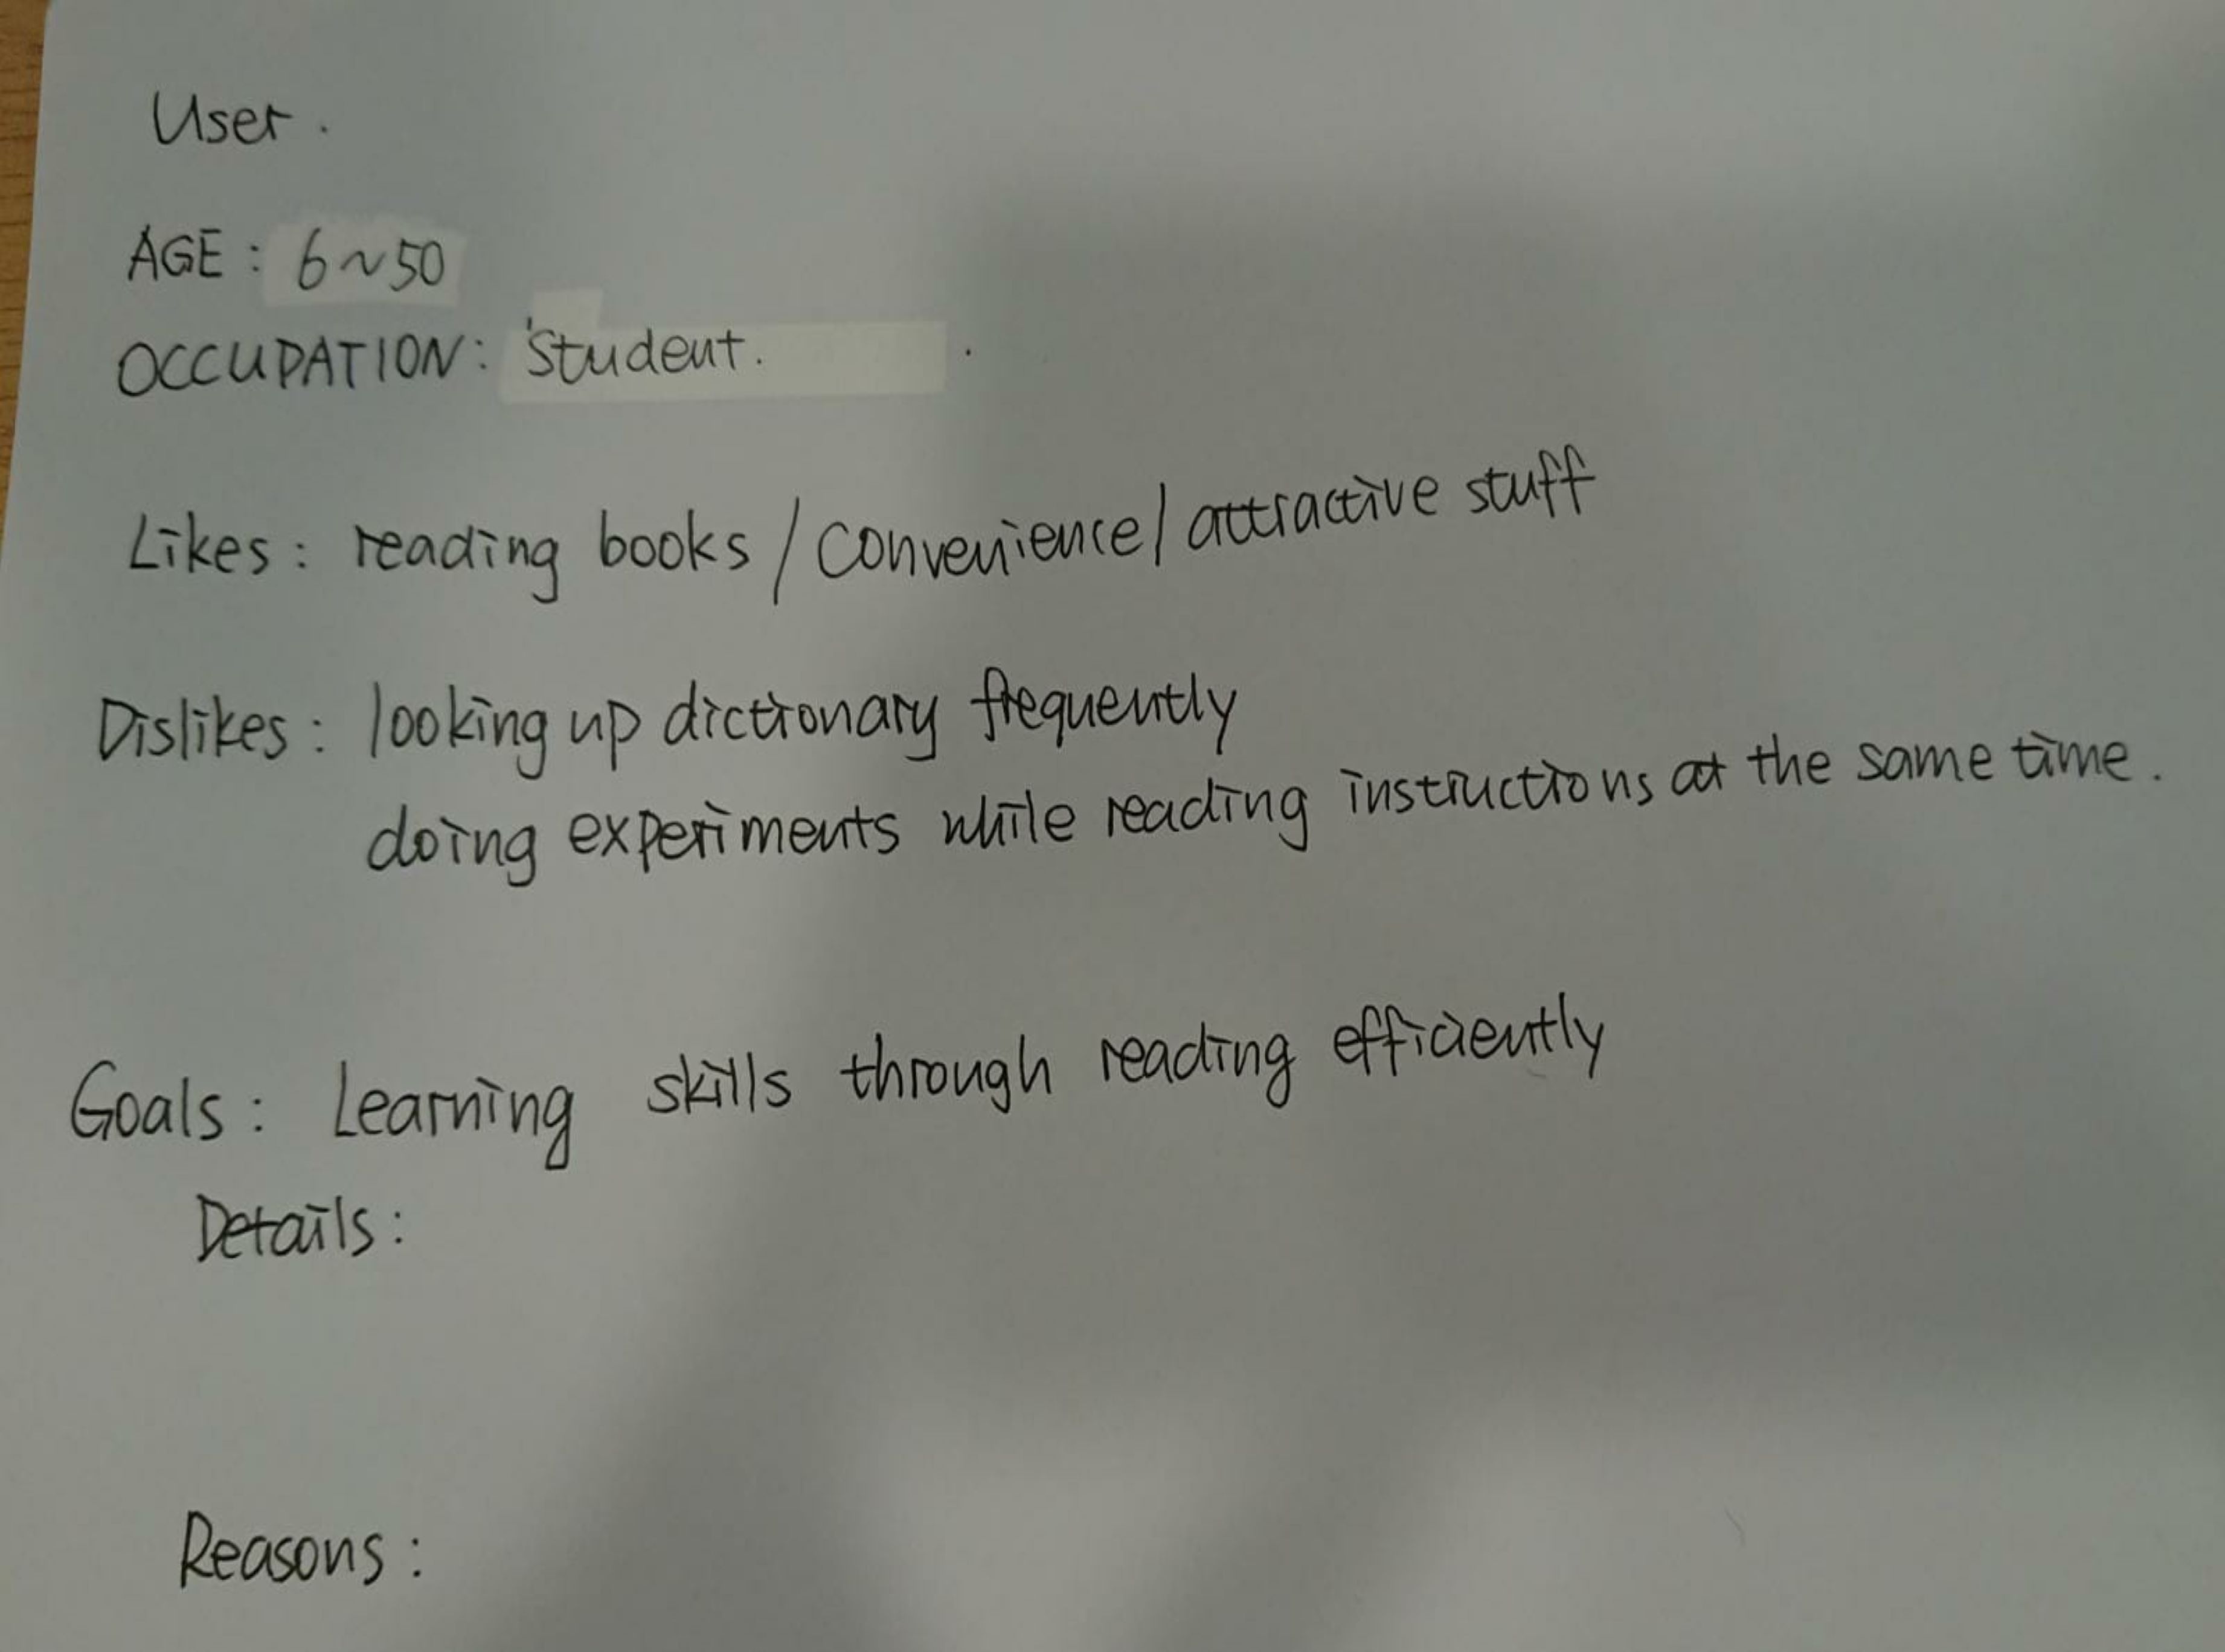 User.
AGE: 6~50
OCCUPATION: Student.
Likes: reading books / convenience / attractive stuff
Dislikes: looking up dictionary frequently
doing experiments while reading instructions at the same time.
Goals: Learning skills through reading efficiently
Details:
Reasons: